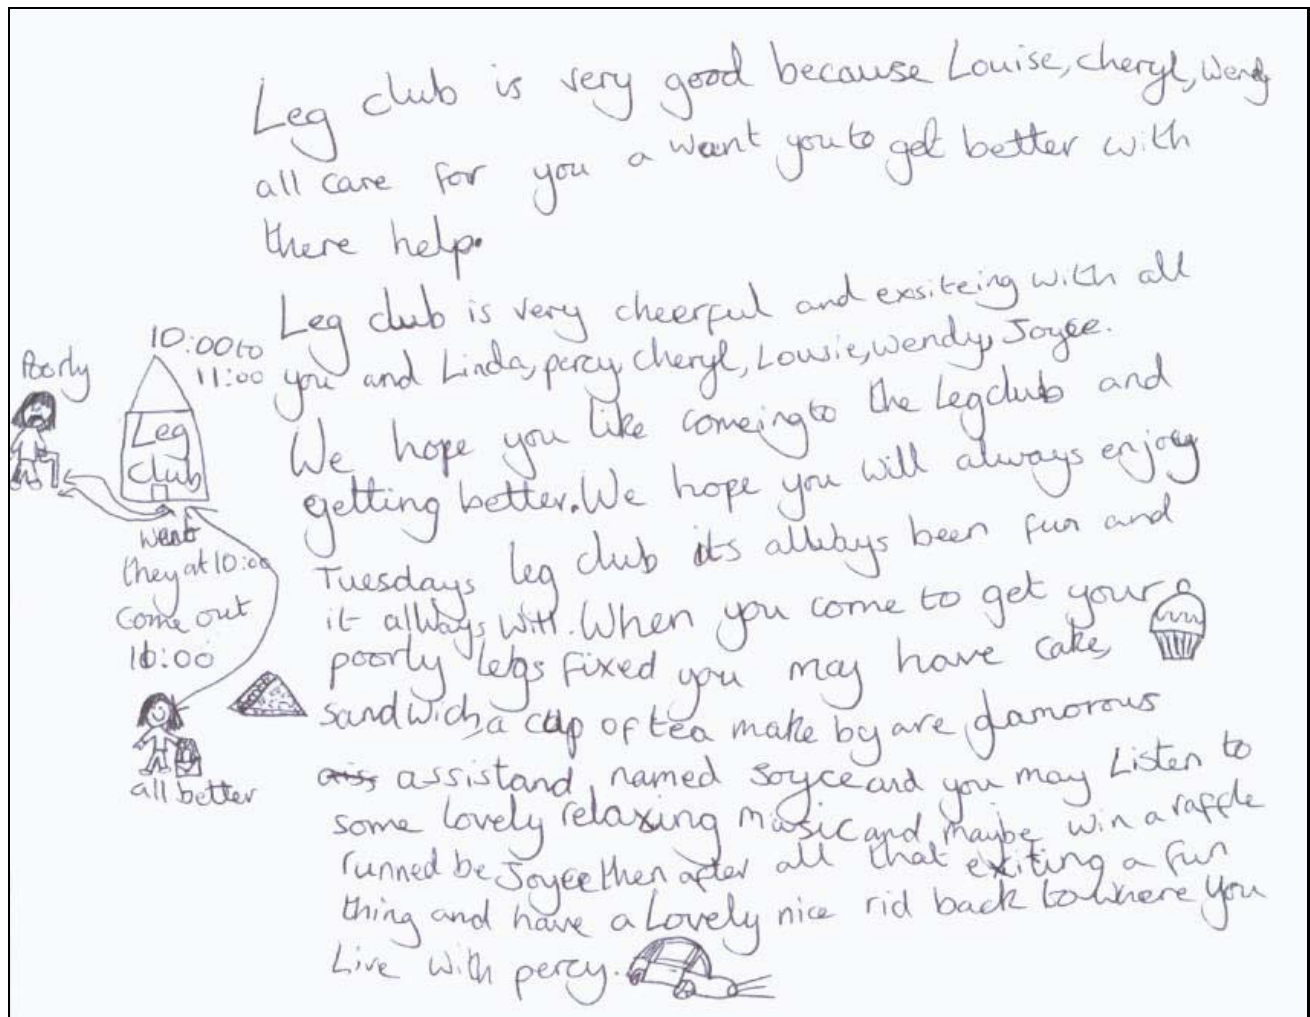 Leg club is very good because Louise, cheryl, Wendy
all care for you a want you to get better with
there help.
Leg club is very cheerful and exsiteing with all
you and Linda, percy, cheryl, Lousie, wendy, Joyce.
We hope you like comeing to the Legclub and
getting better. We hope you will always enjoy
Tuesdays leg club its allways been fun and
it allways will. When you come to get your
poorly legs fixed you may have cake,
sandwich, a cup of tea make by are glamorous
assistand named Joyce and you may Listen to
some Lovely relaxing music and maybe win a raffle
runned be Joyce then after all that exiting a fun
thing and have a Lovely nice rid back to where you
Live with percy.
Poorly
10:00 to
11:00
Leg
Club
went
they at 10:00
Come out
all better